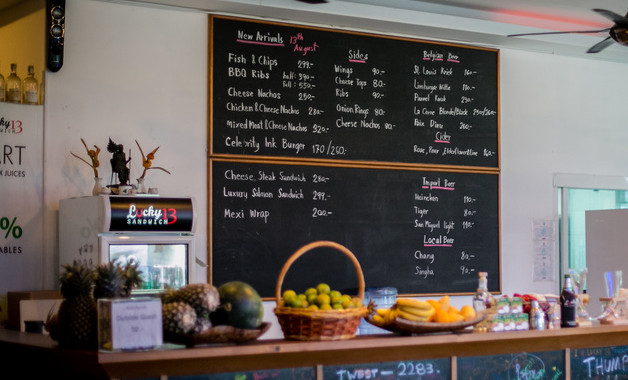 New Arrivals 13th August
Fish & Chips 299.-
BBQ Ribs half: 390.-
full: 550.-
Cheese Nachos 250.-
Chicken & Cheese Nachos 280.-
Mixed Meat & Cheese Nachos 320.-
Celebrity Ink Burger 170/260.-
Sides
Wings 90.-
Cheese Tops 80.-
Ribs 90.-
Onion Rings 80.-
Cheese Nachos 80.-
Belgian Beer
St. Louis Kriek 160.-
Limburgse Witte
Pauwel Kwak 250.-
La Corne Blonde/Black 250/260.-
Pain Dieu 260.-
Cider
Rose, Pear, Elderflower & Lime 160.-
Cheese, Steak Sandwich 280.-
Luxury Salmon Sandwich 299.-
Mexi Wrap 200.-
Import Beer
Heineken
Tiger 80.-
San Miguel light
Local Beer
Chang 80.-
Singha 90.-
Lucky 13
SANDWICH
13
ART
JUICES
%
ABLES
TWEET - 2283.
THUMP